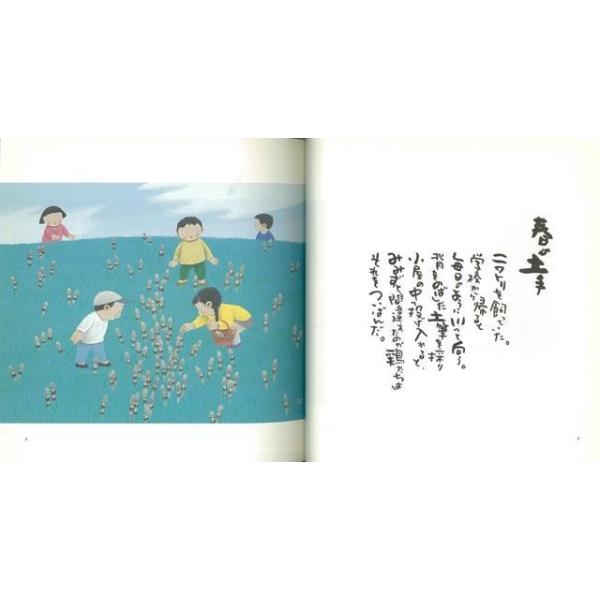 春の土手
ニワトリを飼っていた。
学校から帰ると
毎日のように川へと向う。
背をのばした土筆を採り
小屋の中へ投げ入れると、
みみずと間違えたのか鶏たちは
それをついばんだ。